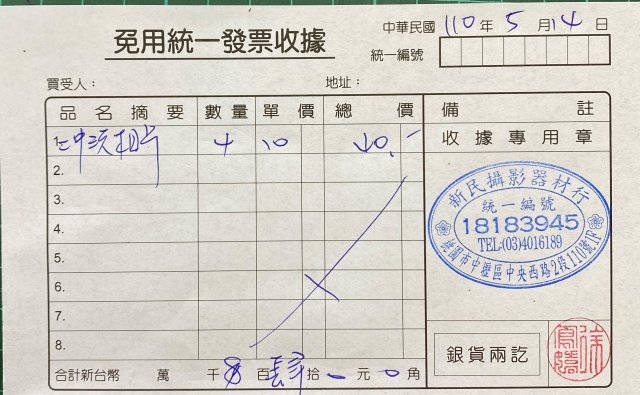 免用統一發票收據
中華民國 110 年 5 月 14 日
統一編號
買受人： 地址：
品名摘要 數量 單價 總價 備註
1. 相片 4 10 40.-
收據專用章
2.
3.
4.
5.
6.
7.
8.
新民攝影器材行
統一編號
18183945
TEL:(03)4016189
桃園市中壢區中央西路2段110號1F
銀貨兩訖
合計新台幣 萬 千 百 肆 拾 元 0 角